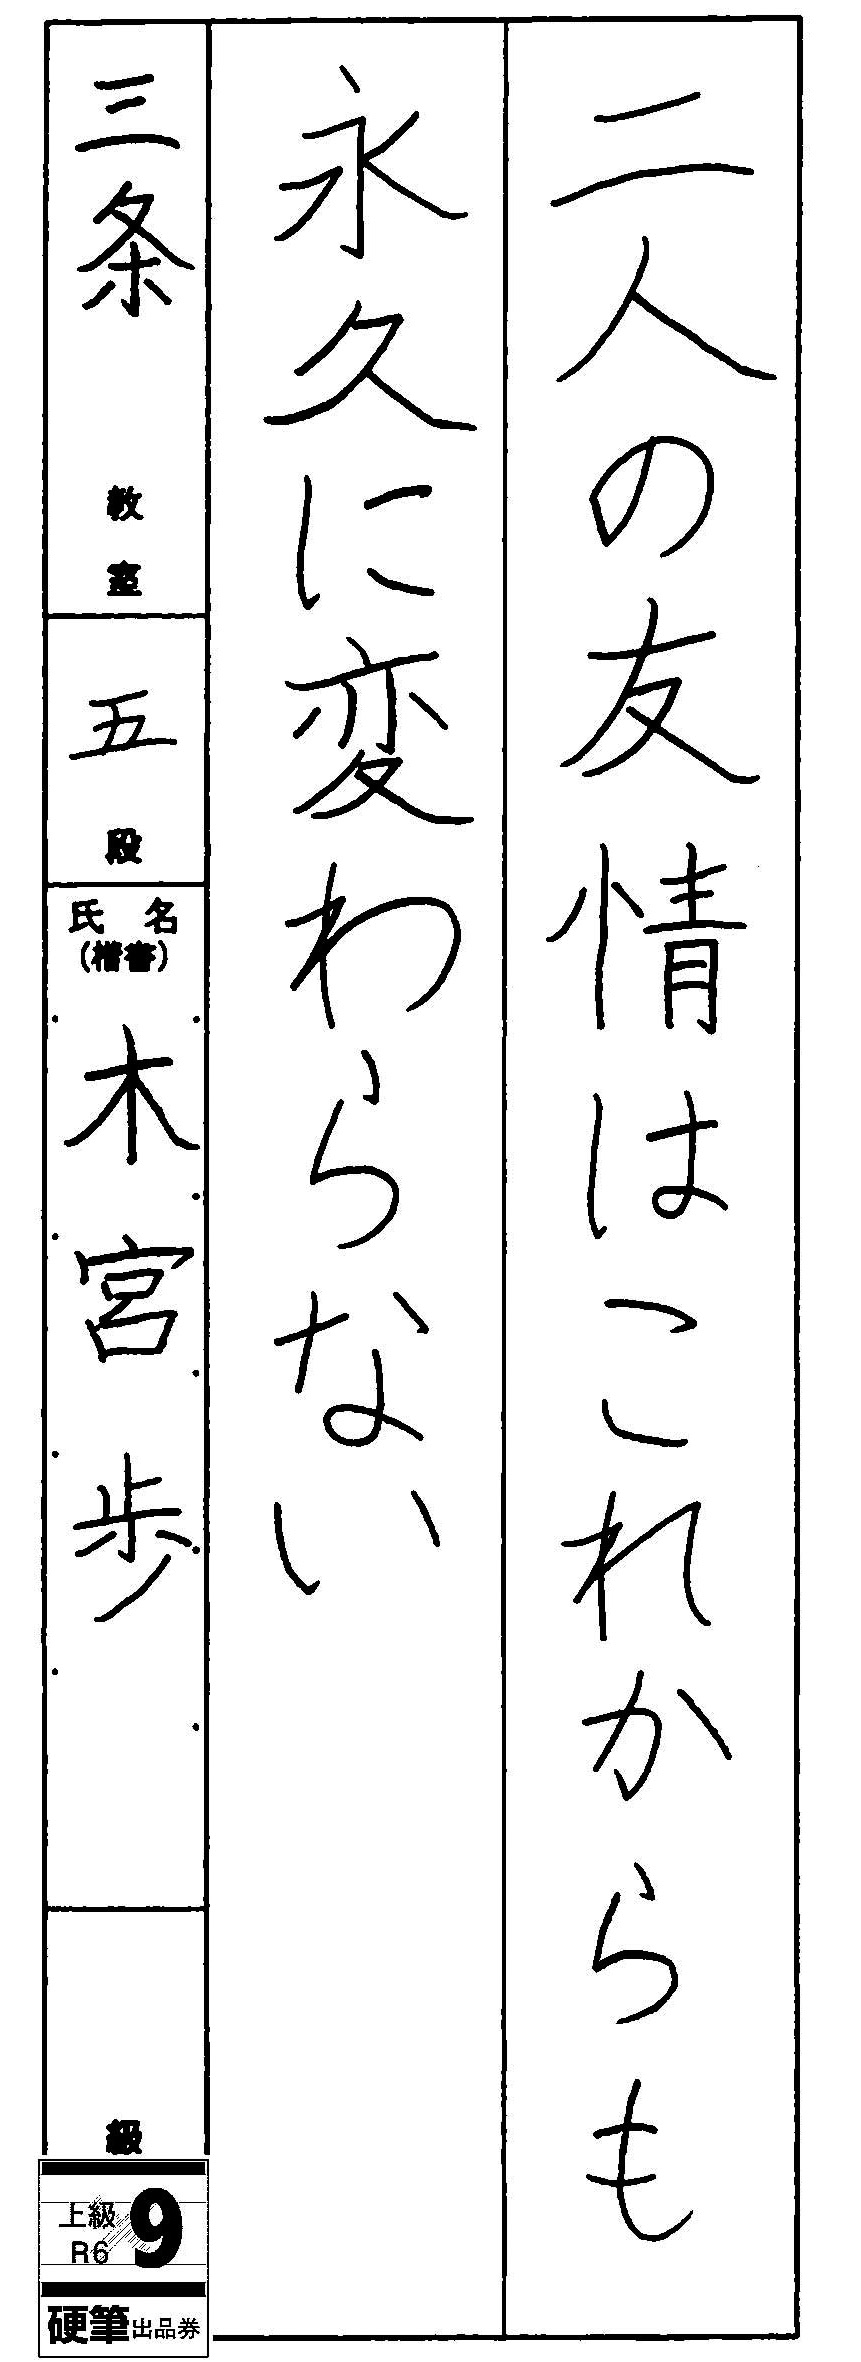 二人の友情はこれからも
永久に変わらない
三条 教室
五 段
氏名
(楷書)
木宮歩
級
上級 9
R6
硬筆出品券